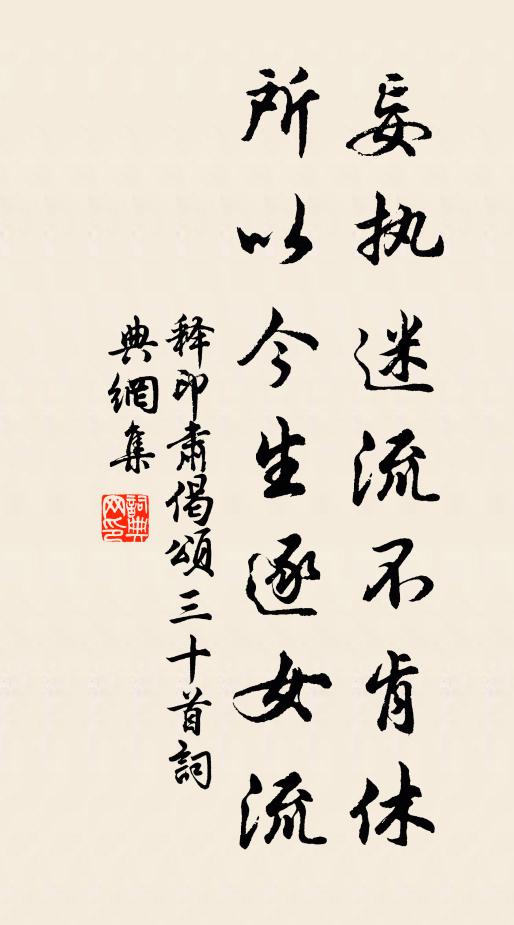 妄执迷流不肯休
所以今生逐女流
释印肃偈頌三十首詞
典網集
詞典網印